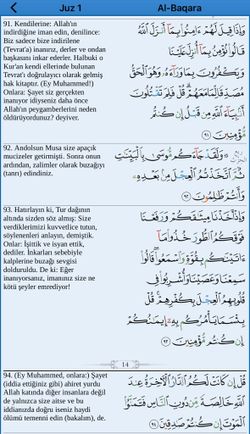 Juz 1
Al-Baqara
91. Kendilerine: Allah'ın
indirdiğine iman edin, denilince:
Biz sadece bize indirilene
(Tevrat'a) inanırız, derler ve ondan
başkasını inkar ederler. Halbuki o
Kur'an kendi ellerinde bulunan
Tevrat'ı doğrulayıcı olarak gelmiş
hak kitaptır. (Ey Muhammed!)
Onlara: Şayet siz gerçekten
inanıyor idiyseniz daha önce
Allah'ın peygamberlerini neden
öldürüyordunuz? deyiver.
وَإِذَا قِيلَ لَهُمْ ءَامِنُوا۟ بِمَآ أَنزَلَ ٱللَّهُ
قَالُوا۟ نُؤْمِنُ بِمَآ أُنزِلَ عَلَيْنَا
وَيَكْفُرُونَ بِمَا وَرَآءَهُۥ وَهُوَ ٱلْحَقُّ
مُصَدِّقًا لِّمَا مَعَهُمْ ۗ قُلْ فَلِمَ تَقْتُلُونَ
أَنۢبِيَآءَ ٱللَّهِ مِن قَبْلُ إِن كُنتُم
مُّؤْمِنِينَ ٩١
92. Andolsun Musa size apaçık
mucizeler getirmişti. Sonra onun
ardından, zalimler olarak buzağıyı
(tanrı) edindiniz.
۞ وَلَقَدْ جَآءَكُم مُّوسَىٰ بِٱلْبَيِّنَـٰتِ
ثُمَّ ٱتَّخَذْتُمُ ٱلْعِجْلَ مِنۢ بَعْدِهِۦ
وَأَنتُمْ ظَـٰلِمُونَ ٩٢
93. Hatırlayın ki, Tur dağının
altında sizden söz almış: Size
verdiklerimizi kuvvetlice tutun,
söylenenleri anlayın, demiştik.
Onlar: İşittik ve isyan ettik,
dediler. İnkarları sebebiyle
kalplerine buzağı sevgisi
dolduruldu. De ki: Eğer
inanıyorsanız, imanınız size ne
kötü şeyler emrediyor!
وَإِذْ أَخَذْنَا مِيثَـٰقَكُمْ وَرَفَعْنَا
فَوْقَكُمُ ٱلطُّورَ خُذُوا۟ مَآ
ءَاتَيْنَـٰكُم بِقُوَّةٍ وَٱسْمَعُوا۟ ۖ قَالُوا۟
سَمِعْنَا وَعَصَيْنَا وَأُشْرِبُوا۟ فِى
قُلُوبِهِمُ ٱلْعِجْلَ بِكُفْرِهِمْ ۚ قُلْ
بِئْسَمَا يَأْمُرُكُم بِهِۦٓ إِيمَـٰنُكُمْ
إِن كُنتُم مُّؤْمِنِينَ ٩٣
14
94. (Ey Muhammed, onlara:) Şayet
(iddia ettiğiniz gibi) ahiret yurdu
Allah katında diğer insanlara değil
de yalnızca size aitse ve bu
iddianızda doğru iseniz haydi
ölümü temenni edin (bakalım), de.
قُلْ إِن كَانَتْ لَكُمُ ٱلدَّارُ ٱلْـَٔاخِرَةُ عِندَ
ٱللَّهِ خَالِصَةً مِّن دُونِ ٱلنَّاسِ فَتَمَنَّوُا۟
ٱلْمَوْتَ إِن كُنتُمْ صَـٰدِقِينَ ٩٤